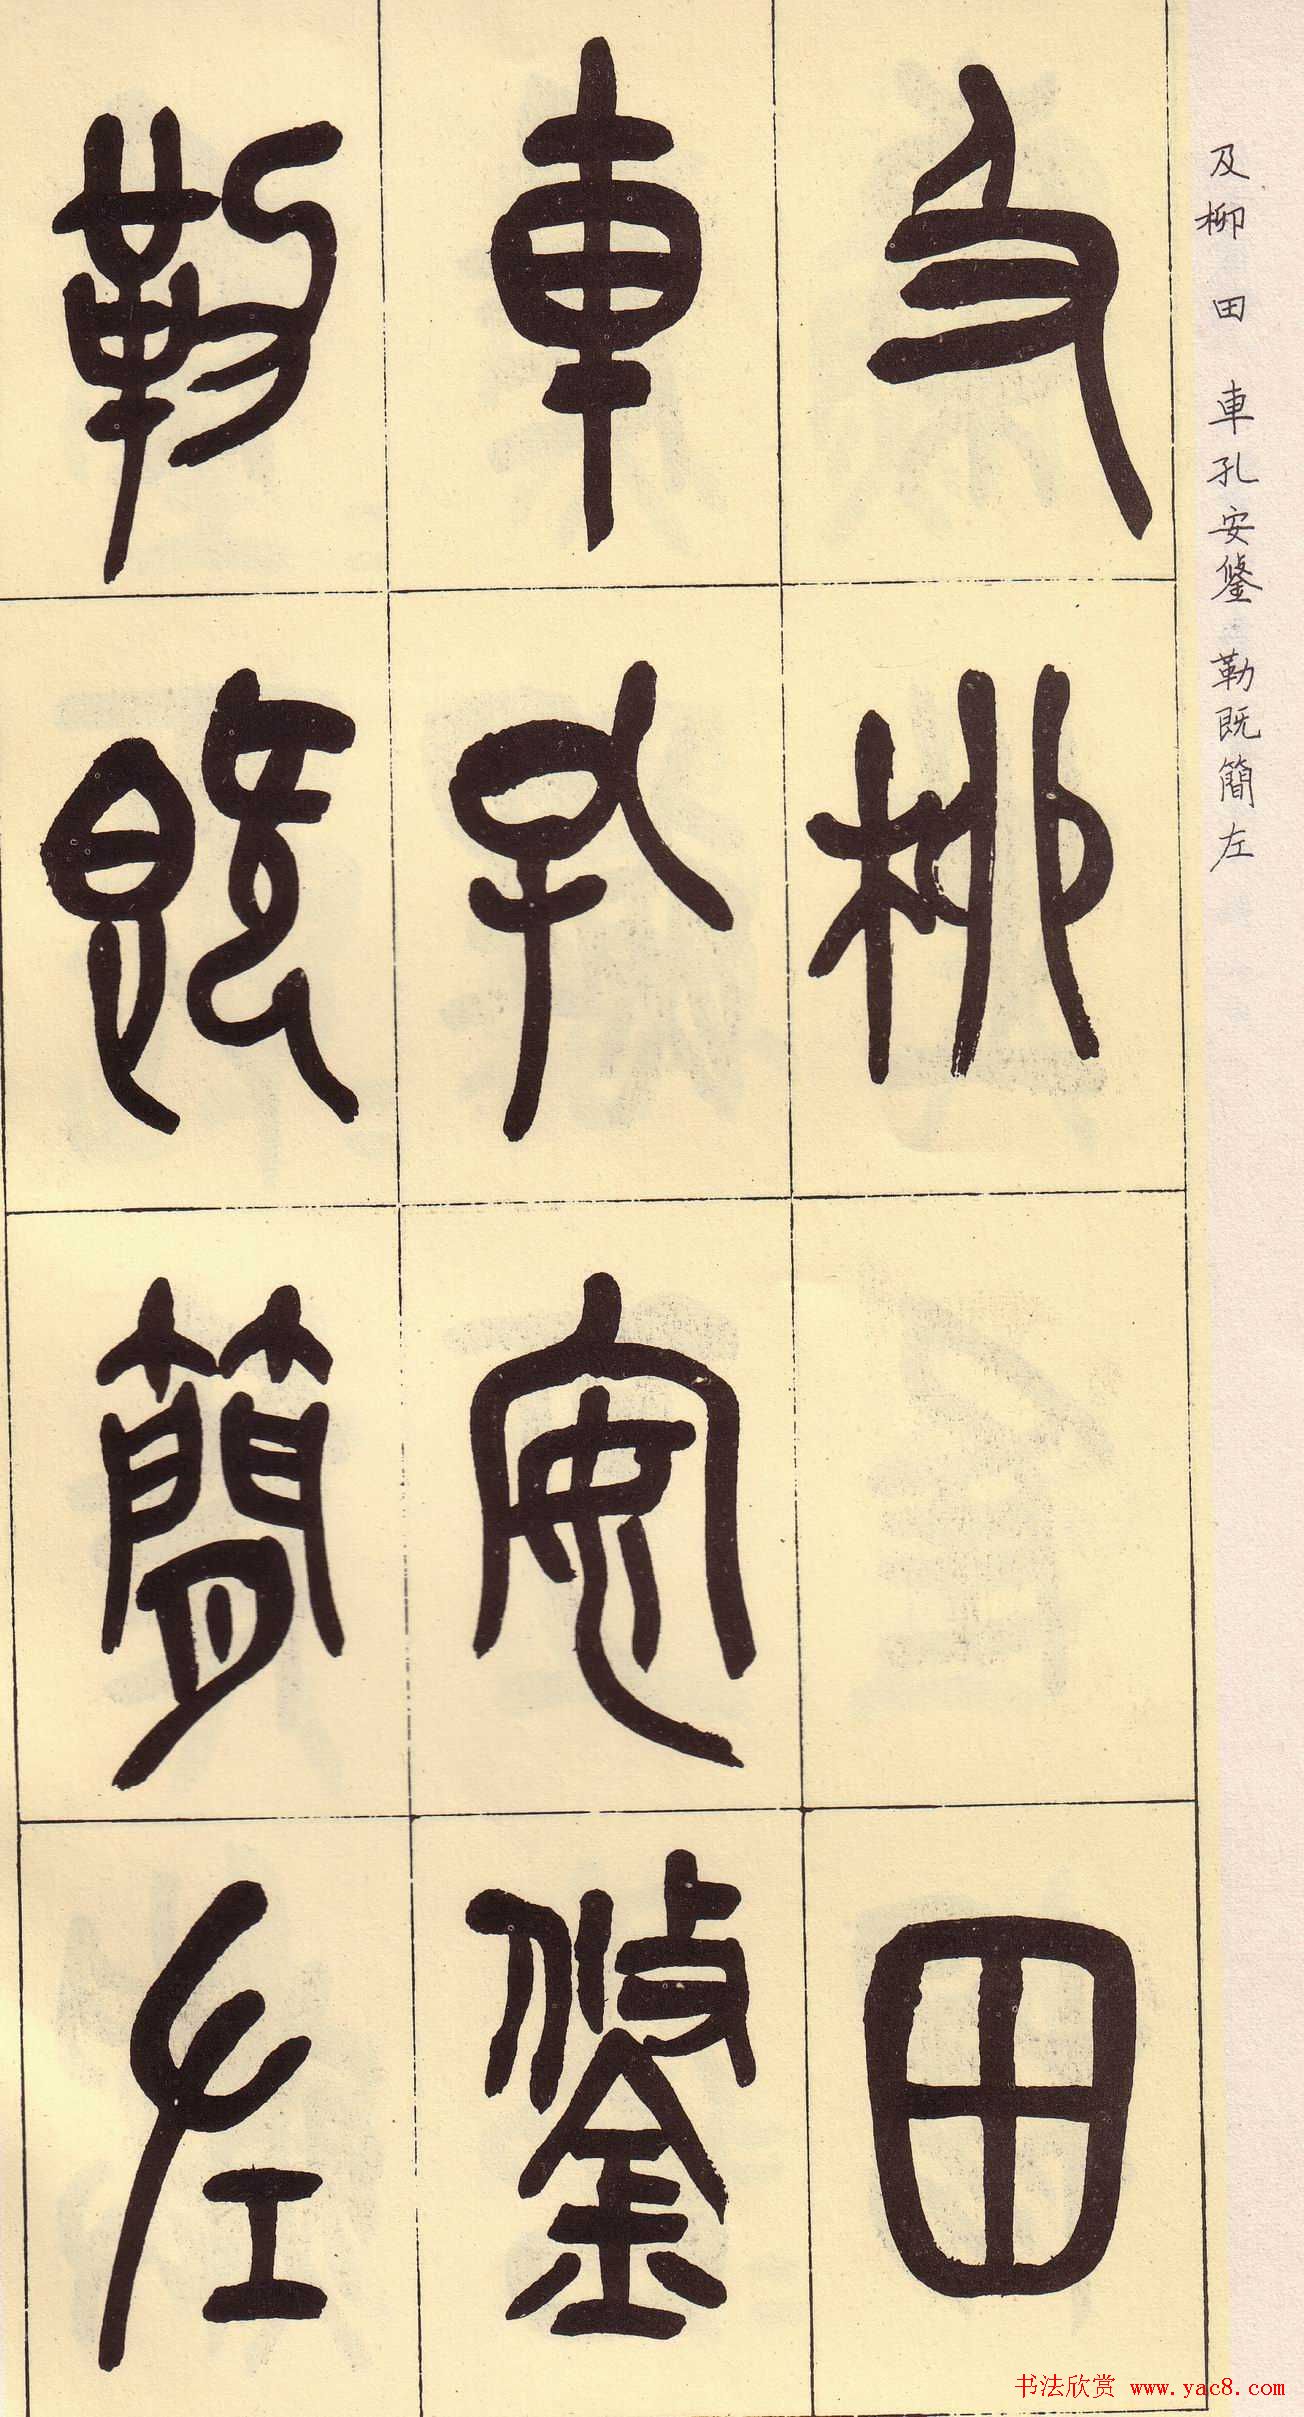 及柳田
車孔安鋚
勒既簡左
及柳 田 車孔安鋚 勒既簡左
书法欣赏 www.yac8.com